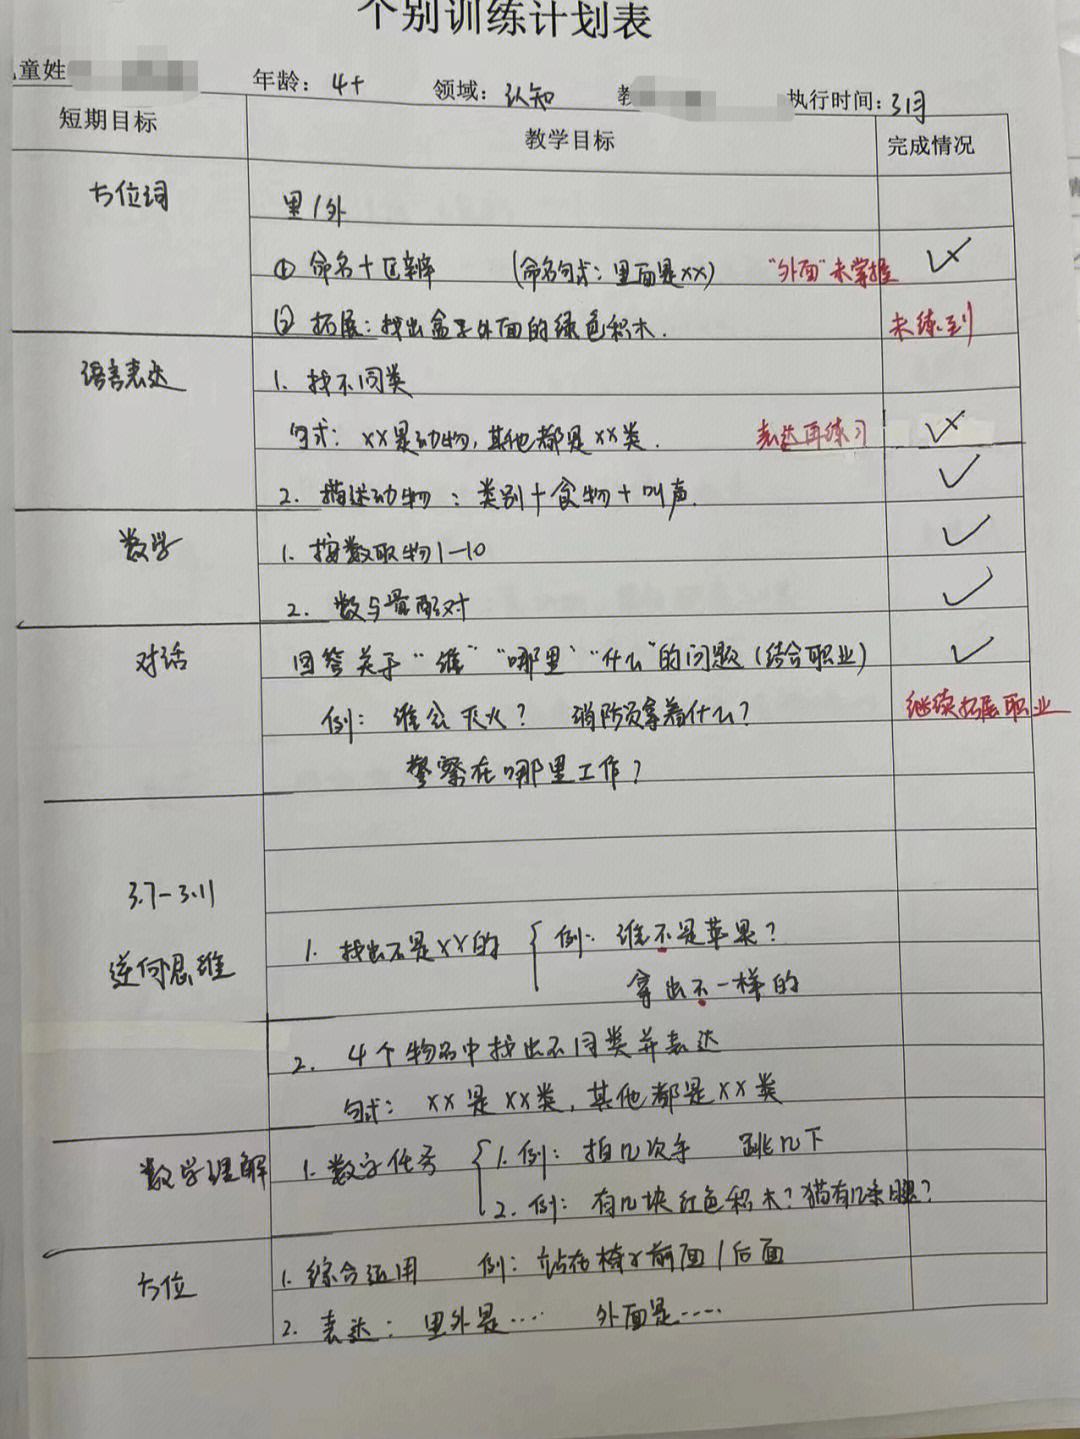 个别训练计划表
童姓 年龄：4+ 领域：认知 教 执行时间：3月
短期目标 教学目标 完成情况
方位词 里/外
① 命名+区辨 (命名句式：里面是XX) "外面"未掌握 ✓×
② 拓展：找出盒子外面的绿色积木. 未练到
语言表达 1. 找不同类
句式：XX是动物,其他都是XX类. 表达再练习 ✓×
2. 描述动物：类别+食物+叫声. ✓
数学 1. 按数取物1-10 ✓
2. 数与量配对 ✓
对话 回答关于"谁""哪里""什么"的问题(结合职业) ✓
例：谁会灭火？ 消防员拿着什么？ 继续拓展职业
警察在哪里工作？
3.7-3.11
逆向思维 1. 找出不是XX的 { 例：谁不是苹果？
拿出不一样的
2. 4个物品中找出不同类并表达
句式：XX是XX类,其他都是XX类
数学理解 1. 数字任务 { 1. 例：拍几次手 跳几下
2. 例：有几块红色积木？猫有几条腿？
方位 1. 综合运用 例：站在椅子前面/后面
2. 表达：里外是…… 外面是……